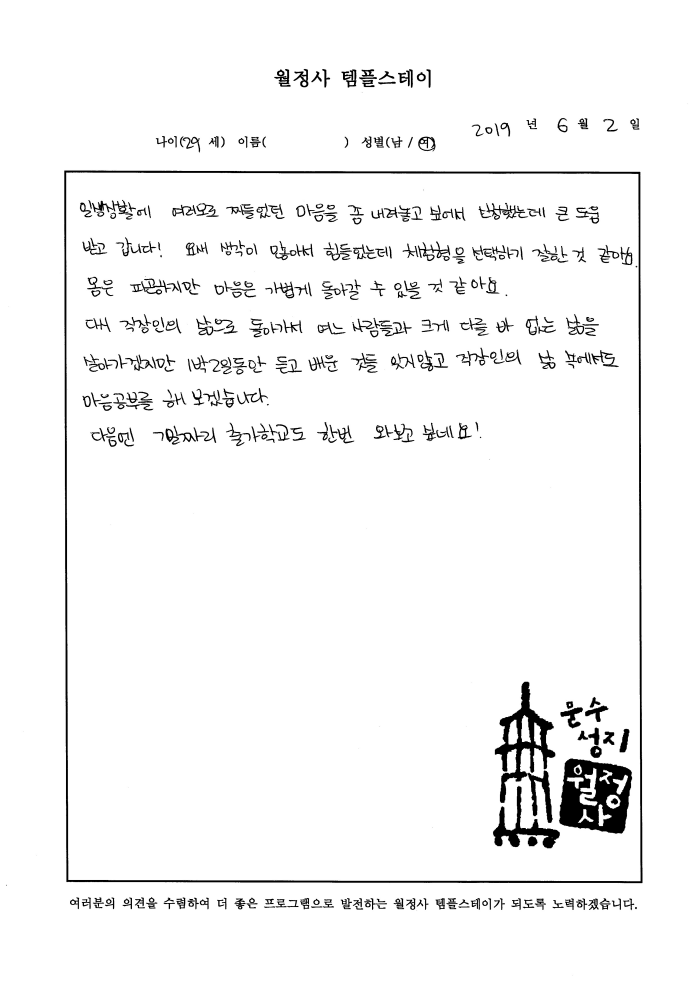 월정사 템플스테이
2019 년 6 월 2 일
나이(29 세) 이름( ) 성별(남 / 여)
일생생활에 여러모로 찌들었던 마음을 좀 내려놓고 싶어서 신청했는데 큰 도움
받고 갑니다! 요새 생각이 많아서 힘들었는데 체험형을 선택하기 잘한 것 같아요.
몸은 피곤하지만 마음은 가볍게 돌아갈 수 있을 것 같아요.
다시 직장인의 삶으로 돌아가서 여느 사람들과 크게 다를 바 없는 삶을
살아가겠지만 1박2일동안 듣고 배운 것들 잊지않고 직장인의 삶 속에서도
마음공부를 해 보겠습니다.
다음엔 7말짜리 출가학교도 한번 와보고 싶네요!
문수
성지
월정
사
여러분의 의견을 수렴하여 더 좋은 프로그램으로 발전하는 월정사 템플스테이가 되도록 노력하겠습니다.